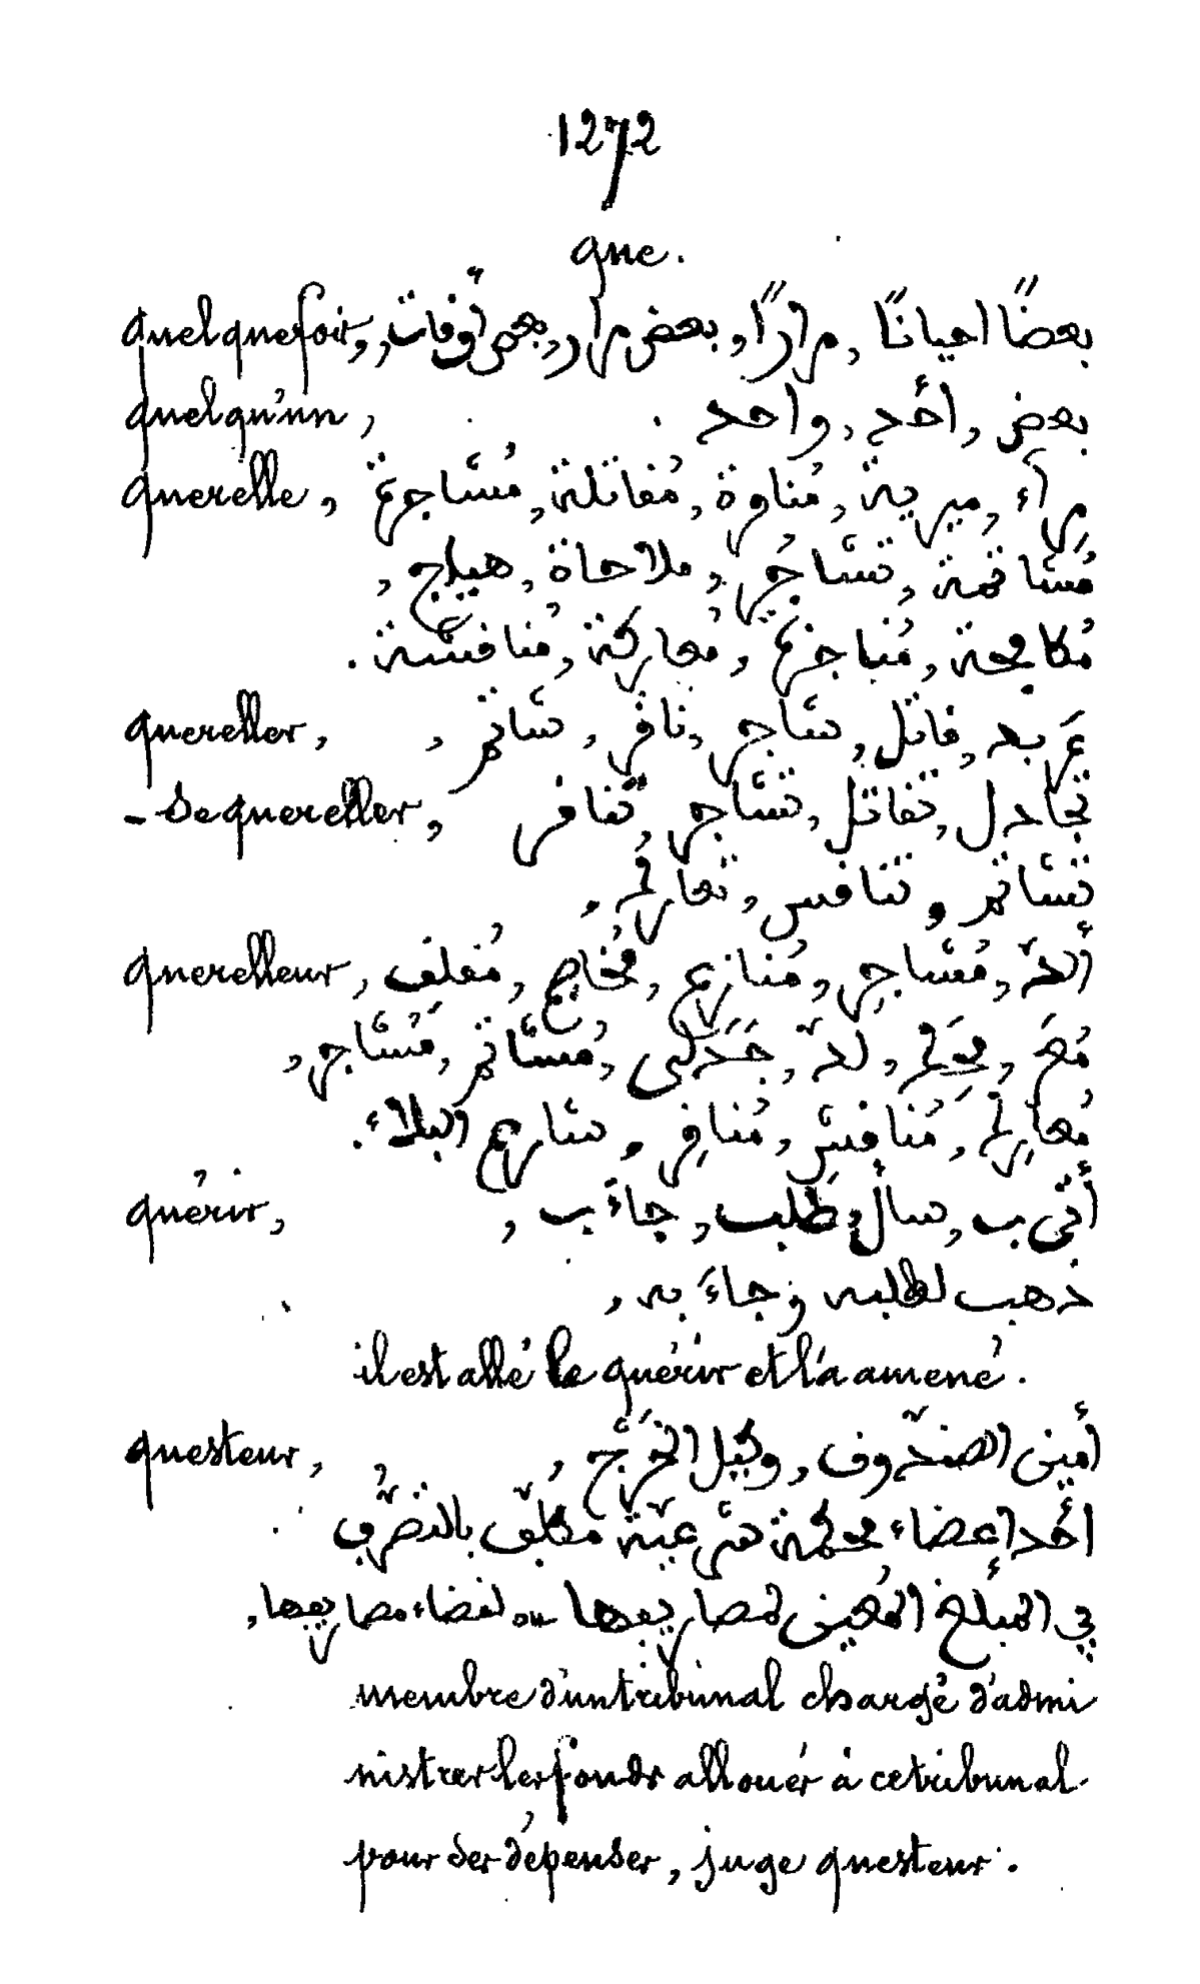 1272
que.
quelquefois, بعضًا احيانًا, مرارًا, بعض مرار, بعض أوقات,
quelqu'un, بعض, أحد, واحد.
querelle, مِرآء, ميرية, مُناوة, مُقاتلة, مُشاجرة
مُشاتمة, تشاجُر, ملاحاة, هياج,
مُكافحة, مُناجزة, مُعاركة, مُنافسة.
quereller, عَربد, قاتل, شاجر, نافر, شاتم,
- se quereller, تجادل, تقاتل, تشاجر, تنافر
تشاتم, تنافس, تعارك,
querelleur, ألدّ, مُشاجِر, مُنازع, مُخاصم, مُقلِق,
لدّ, جَدَلى, مُشاتم, مُشاجر,
مُعارِك, مُنافِس, مُنافِر, شارع البلاء.
quérir, أتى ب, سأل, طَلب, جاءَ ب,
ذهب لطلبه وجاءَ به,
il est allé le quérir et l'a amené.
questeur, أمين الصندوق, وكيل الخَرْج,
أحد اعضاء محكمة شرعيّة مُكلّف بالتصرّف
في المبلغ المُعين لمصاريعها لقضاء مصاريعها,
membre d'un tribunal chargé d'admi
nistrer les fonds alloués à ce tribunal
pour ses dépenses, juge questeur.